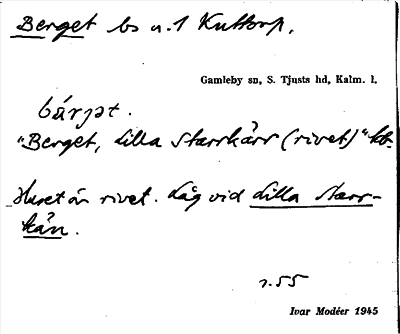 Berget bs u. 1 Kuttorp.
Gamleby sn, S. Tjusts hd, Kalm. l.
bárjət.
"Berget, Lilla Starrkärr (rivet)" kb.
Huset är rivet. Låg vid Lilla Starr-
kärr.
r. 55
Ivar Modéer 1945